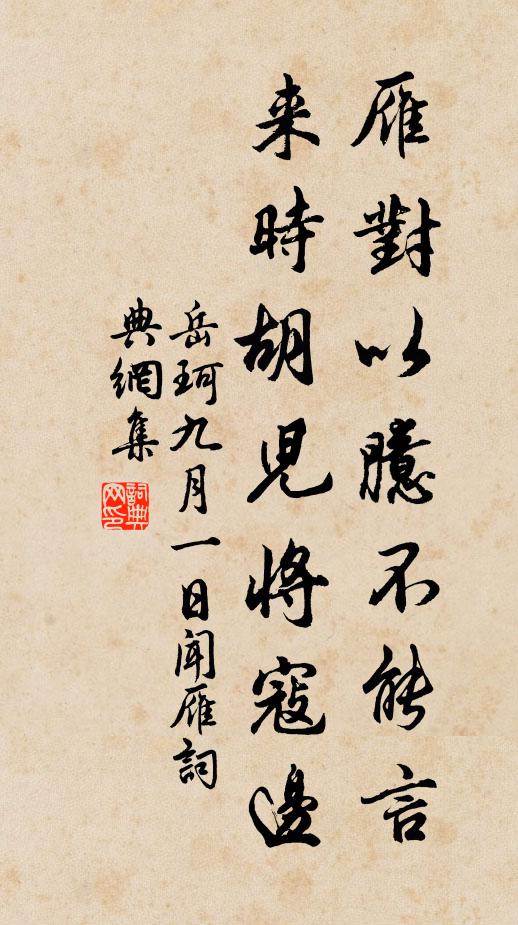 雁對以臆不能言
来時胡児將寇邊
岳珂九月一日闻雁詞
典網集
詞典网印